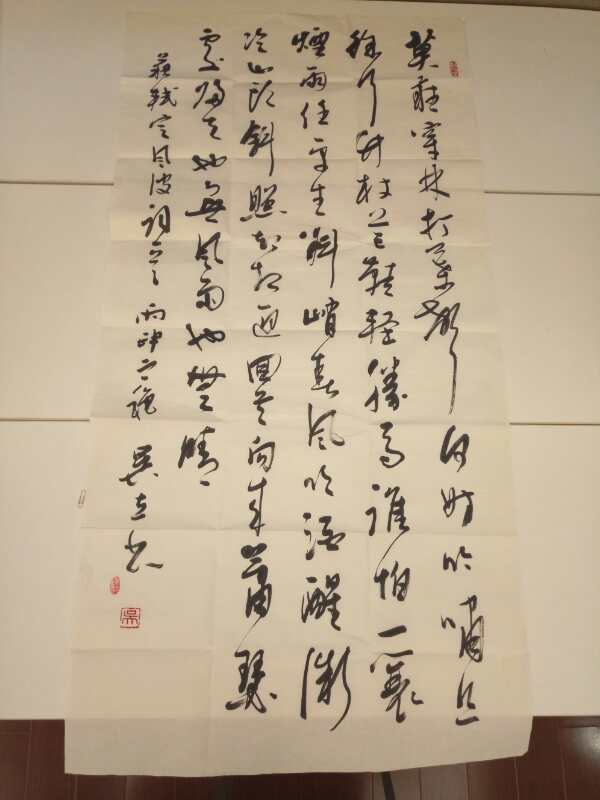 莫聽穿林打葉聲何妨吟嘯且
徐行竹杖芒鞋輕勝馬誰怕一蓑
煙雨任平生料峭春風吹酒醒微
冷山頭斜照卻相迎回首向來蕭瑟
處歸去也無風雨也無晴
蘇軾定風波詞一首 丙申之秋 吳立書